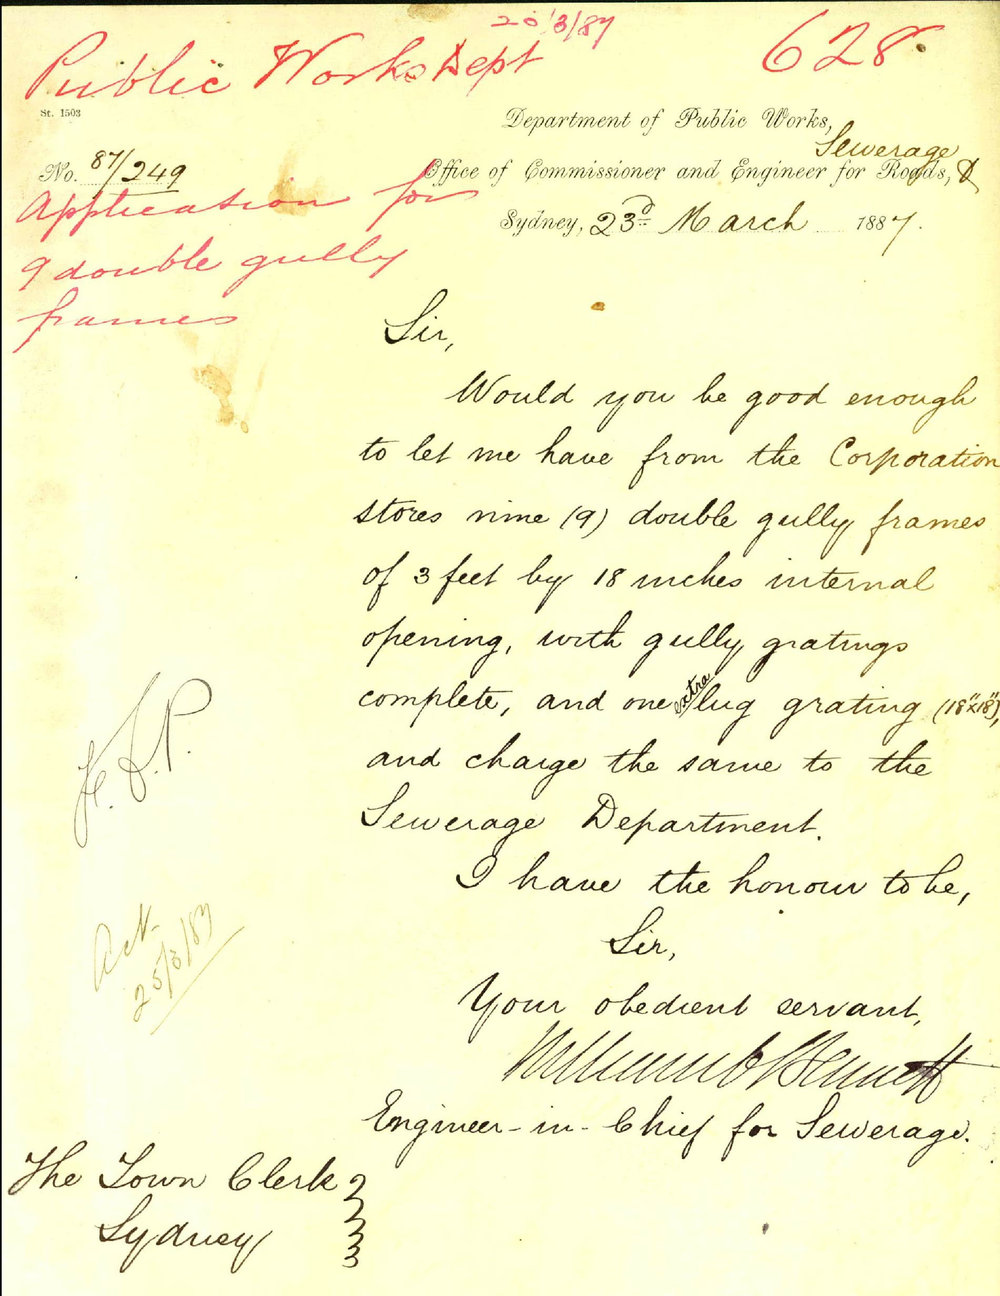 Public Works Dept
628
St. 1503
Department of Public Works,
Sewerage
No. 87/249
Office of Commissioner and Engineer for Roads, &
Application for
9 double gully
frames
Sydney, 23d March 1887.
Sir,
Would you be good enough
to let me have from the Corporation
stores nine (9) double gully frames
of 3 feet by 18 inches internal
opening, with gully gratings
complete, and one extra lug grating (18"x18"),
and charge the same to the
Sewerage Department.
I have the honour to be,
Sir,
Your obedient servant,
Bennett
Engineer-in-Chief for Sewerage.
25/3/87
The Town Clerk
Sydney